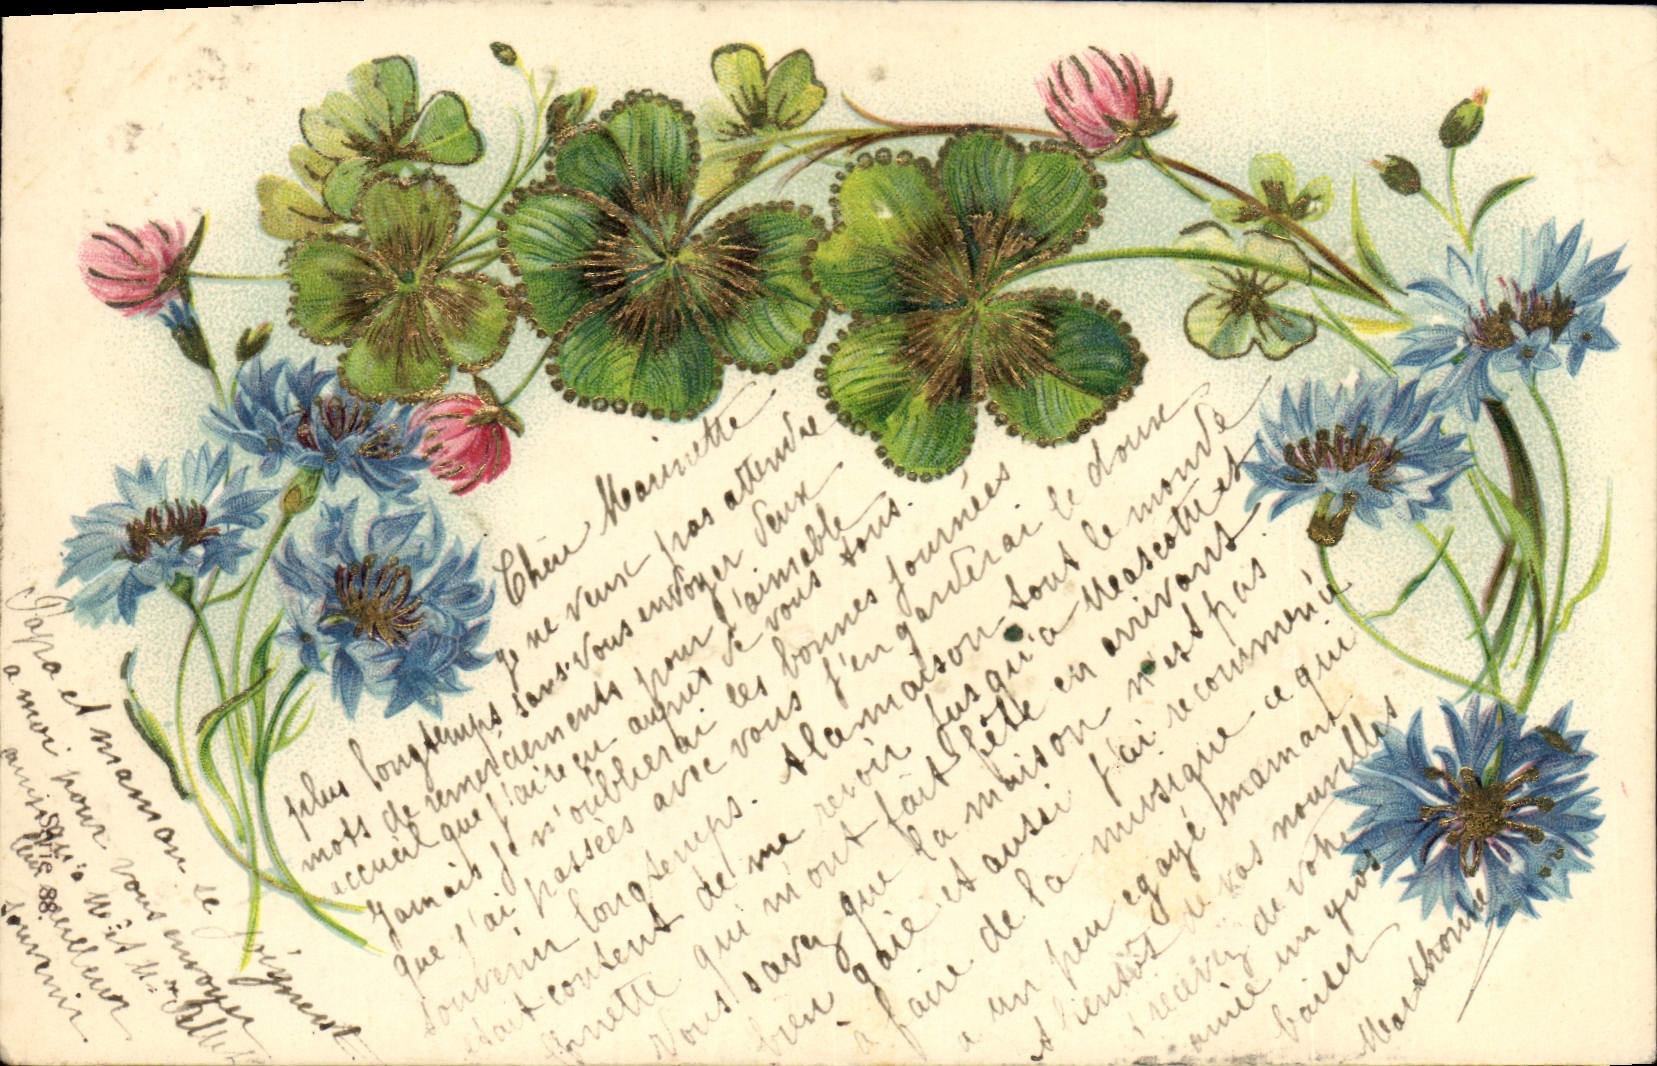 Chère Marinette
Je ne veux pas attendre
plus longtemps sans vous envoyer deux
mots de remerciements pour l'aimable
accueil que j'ai eu auprès de vous tous.
Jamais je n'oublierai les bonnes journées
que j'ai passées avec vous j'en garderai le doux
souvenir longtemps. A la maison tout le monde
était content de me revoir jusqu'à Mascotte et
finette qui m'ont fait fête en arrivant.
Vous savez que la maison n'est pas
bien gaie et aussi j'ai recommencé
à faire de la musique ce qui
a un peu égayé maman
A bientôt de vos nouvelles
recevez de votre
amie un gros
baiser
Marthome
Papa et maman se joignent
à moi pour vous envoyer
ainsi qu'à Mr et Mme
leur meilleur
souvenir.